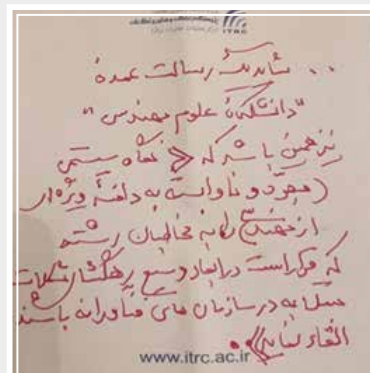 ITRC
... شاید یک رسالت عمدهٔ
"دانشکدهٔ علوم مهندسی"
نیز همین باشد که « نگاه سیستمی
(مجرد و ناوابسته به دامنهٔ ویژه‌ای
از مهندسی) را به مخاطبان رشته
که قرار است در ابعاد وسیع رهگشای مشکلات
مبتلابه در سازمان های فناورانه باشند
القاء نماید».
www.itrc.ac.ir